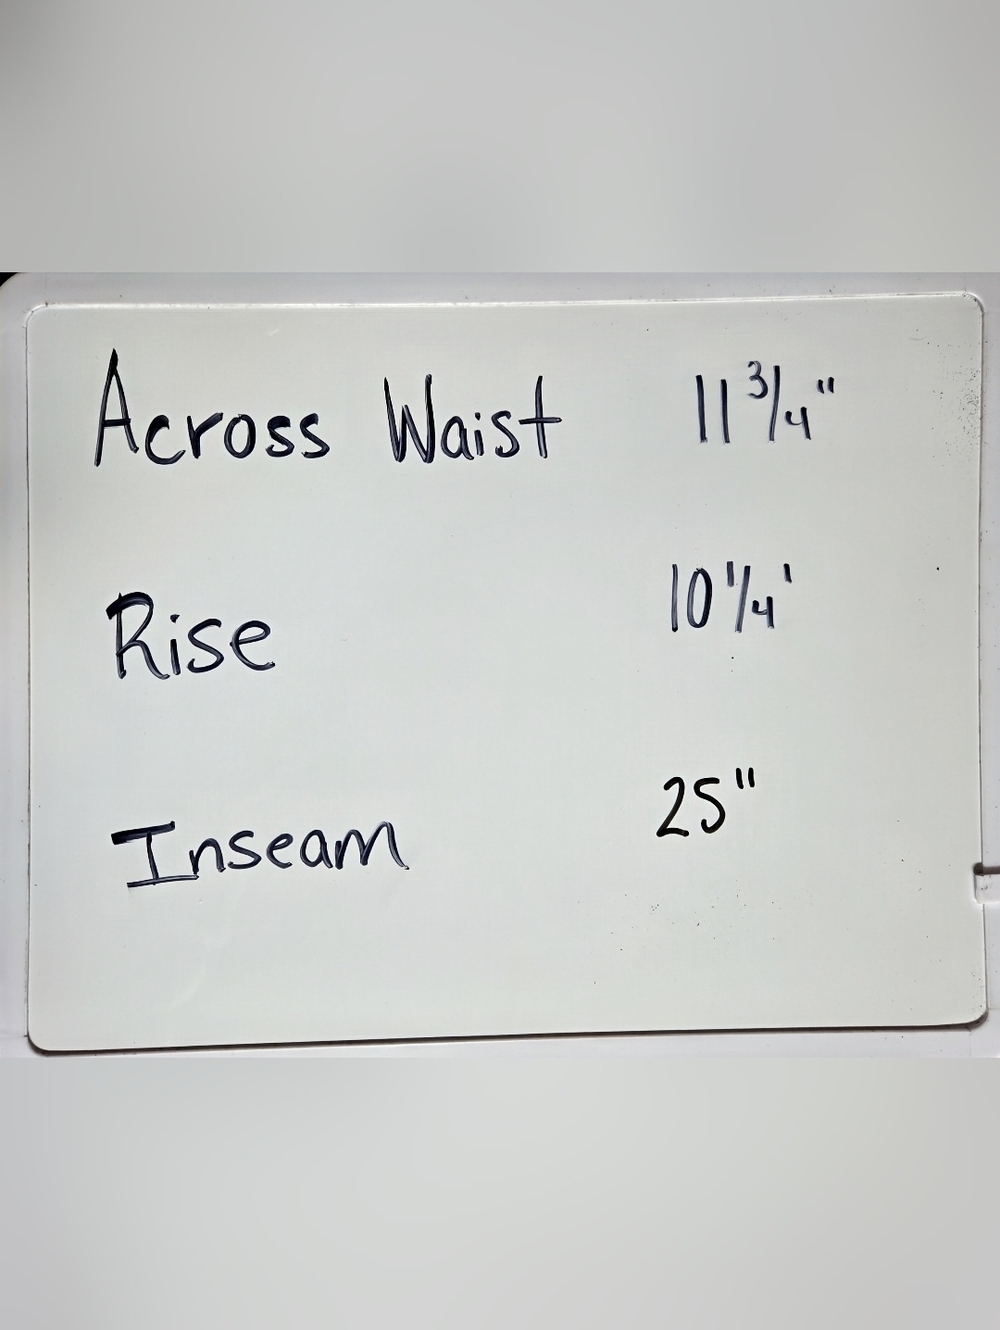 Across Waist 11 3/4"
Rise 10 1/4'
Inseam 25"